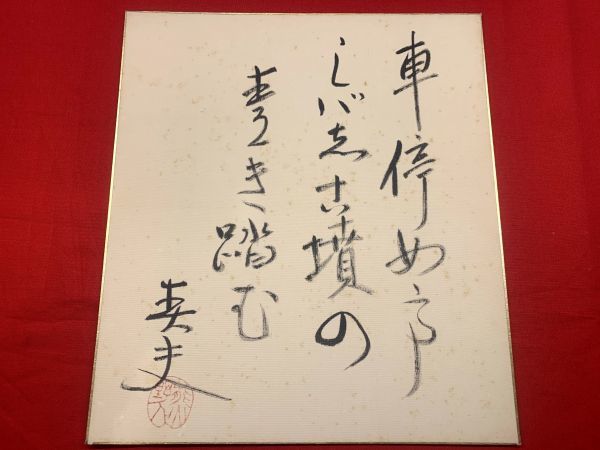 車停め亭
しバし古墳の
青き踏む
英夫